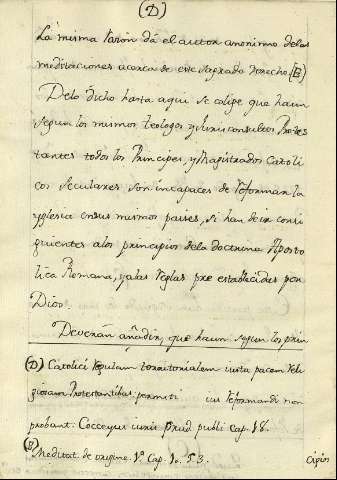 (D)
La misma razón dá el autor anonimo de las
meditaciones acerca de este sagrado derecho. (E)
De lo dicho hasta aqui se colige que haun
segun los mismos teologos y Jurisconsultos Protes
tantes todos los Principes, y Magistrados Catoli
cos seculares son incapaces de reformar la
yglesia en sus mismos paises, si han de ir consi
guientes a los principios de la doctrina Aposto
lica Romana, y a las reglas pre establecidas por
Dios.
Deverán añadir, que haun segun los prin
(D) Catolici territorialem iuxta pacem reli
giosam Protestantibus permiti ius reformandi non
probant. Cocceyus iuris publi cap. 18.
(E) Meditat. de origine. V. Cap. 10. § 3.
cipios